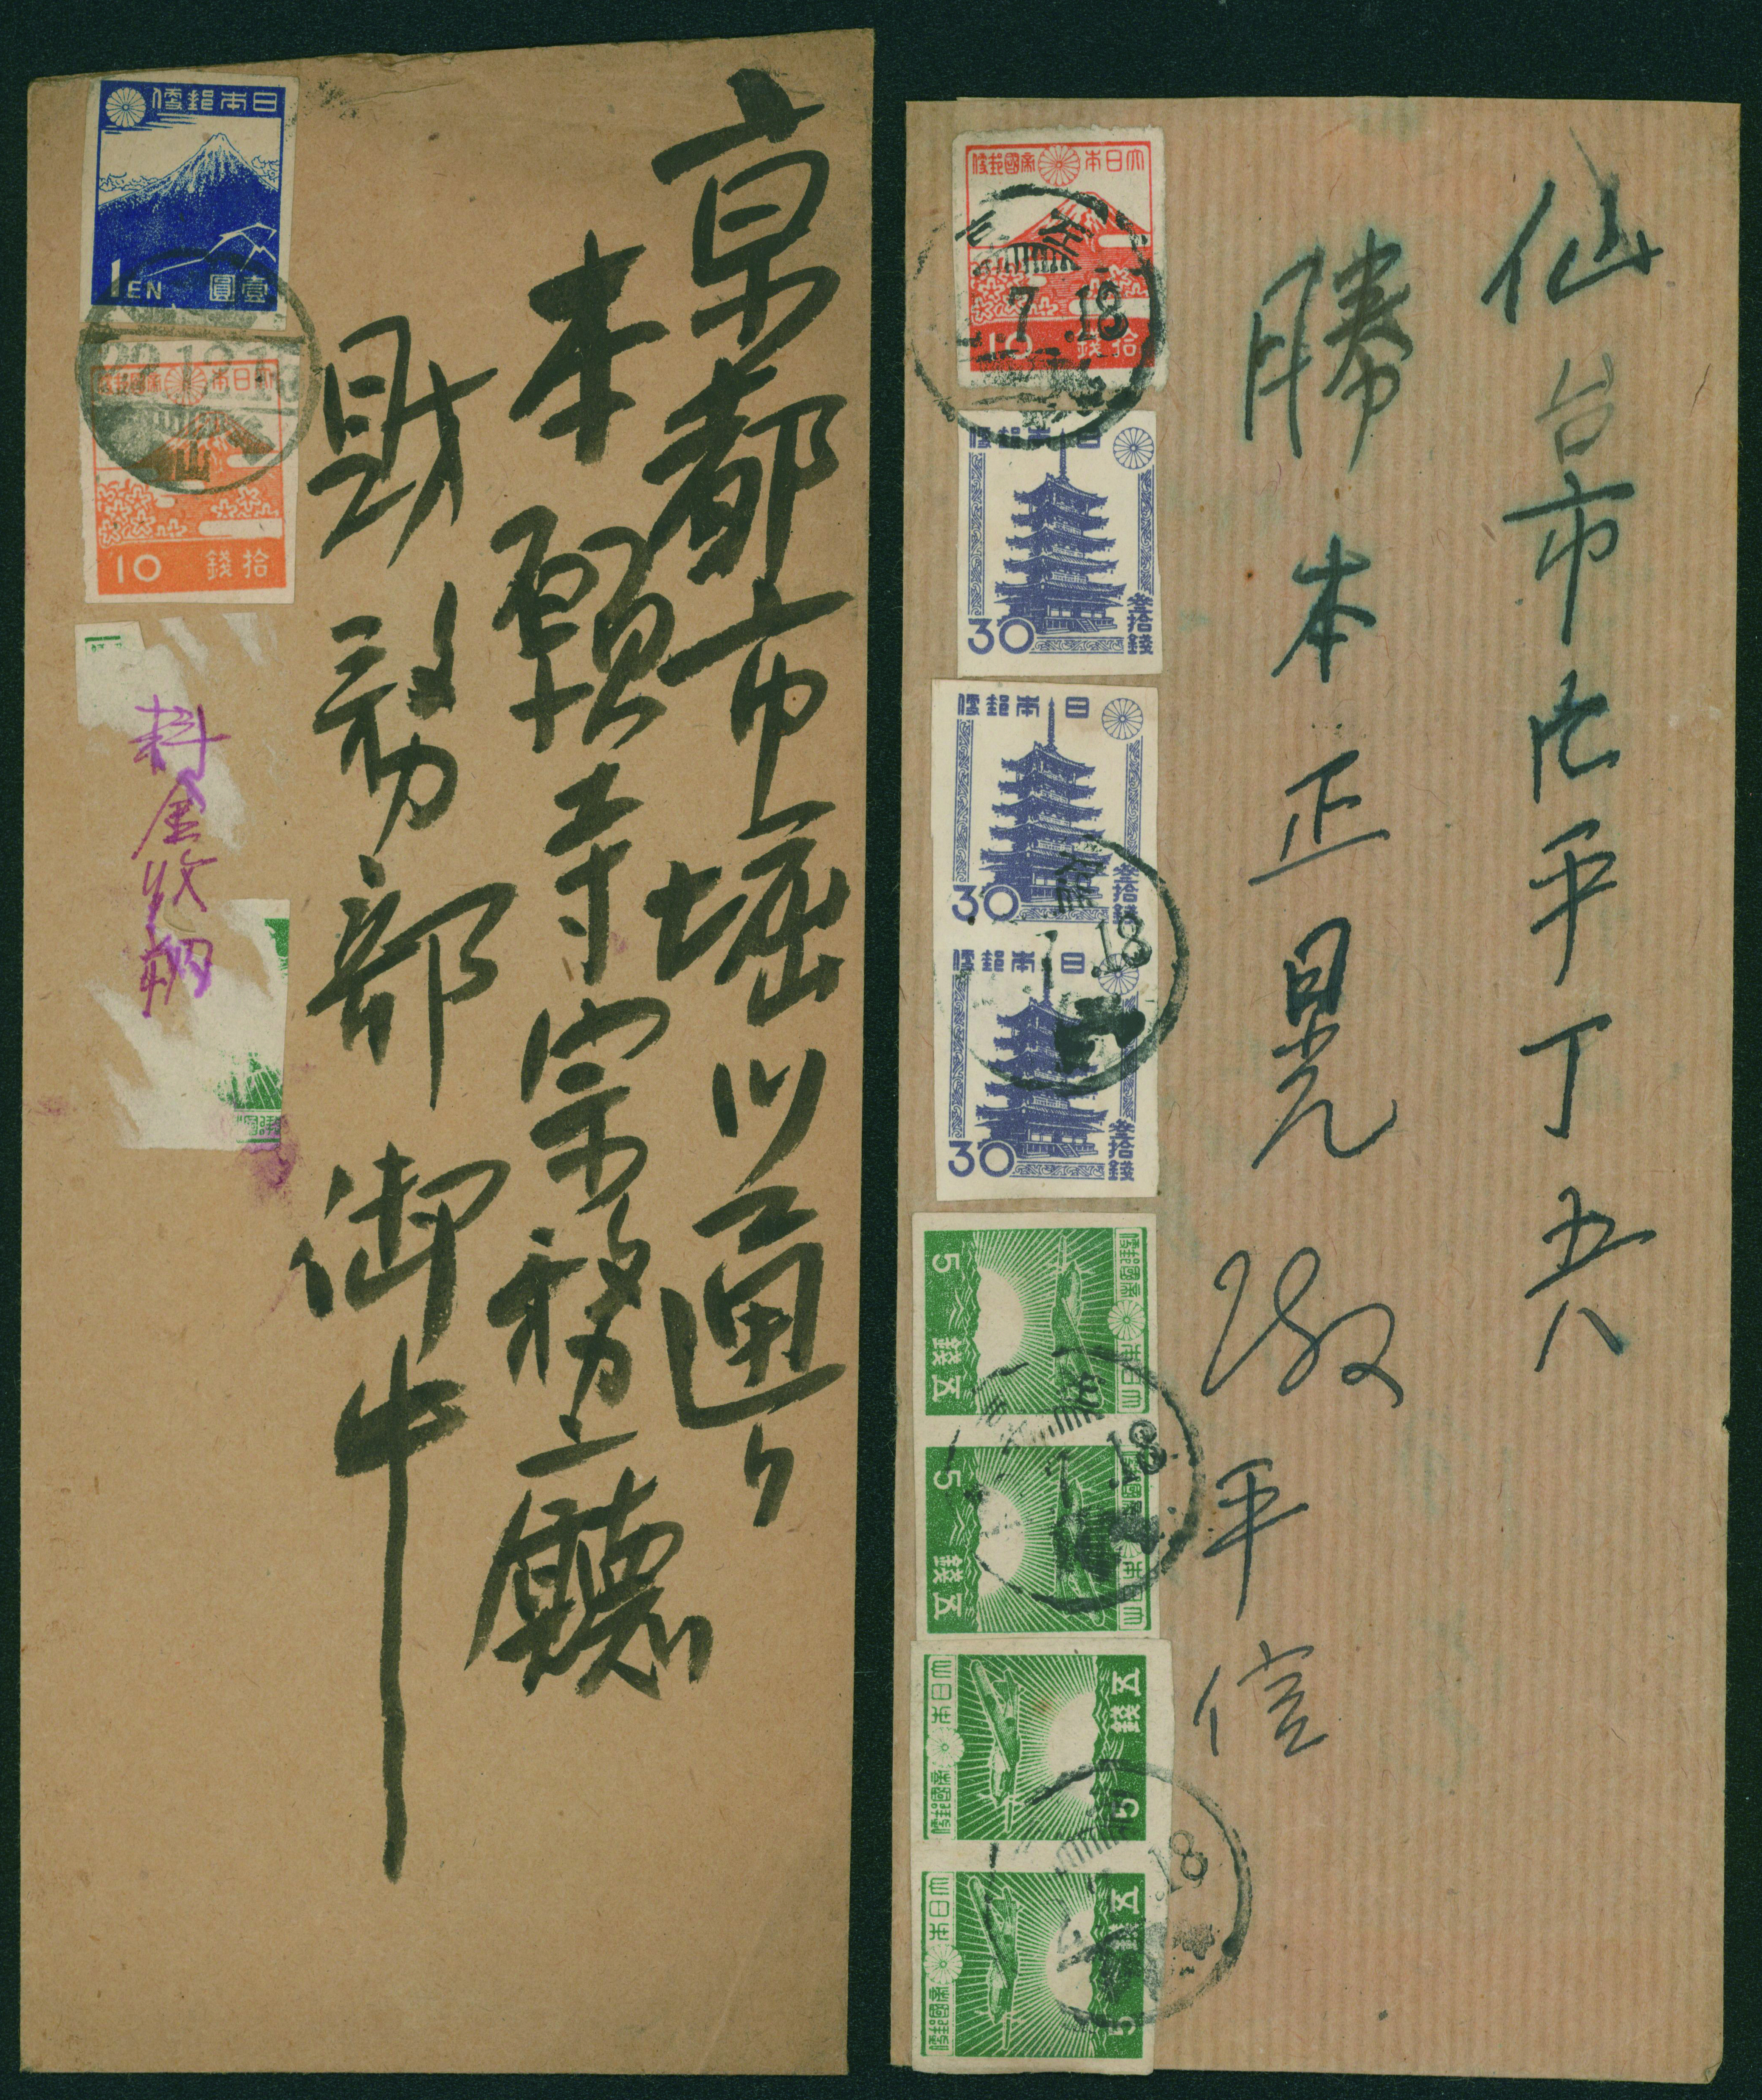 京都市堀川通り
本願寺宗務庁
財務部御中
日本郵便
1EN 壹圓
大日本帝國郵便
10 拾錢
料金收納
仙台市北平丁五六
勝本正晃
平信
大日本帝國郵便
7 .18
10 拾錢
日本郵便
30 叁拾錢
日本郵便
30 叁拾錢
.18
日本郵便
30 叁拾錢
大日本帝國郵便
5 五錢
.18
大日本帝國郵便
5 五錢
大日本帝國郵便
5 五錢
.18
大日本帝國郵便
5 五錢